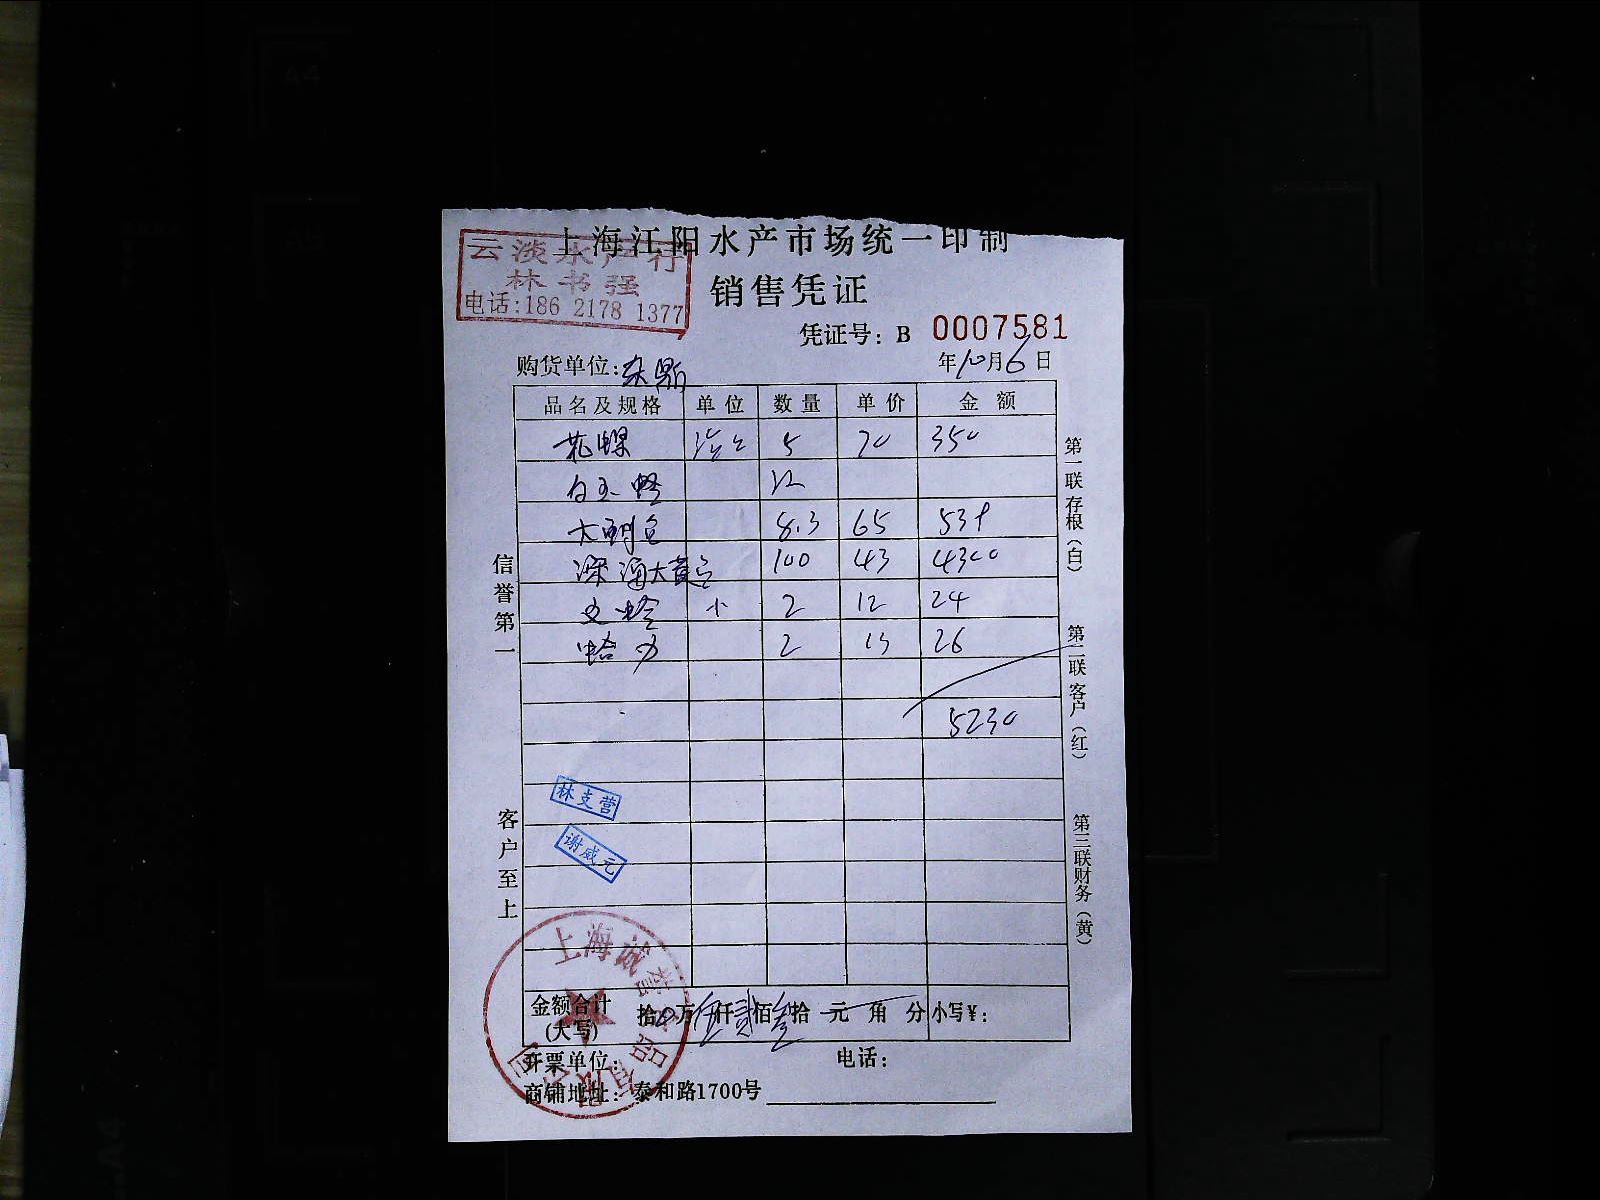 上海江阳水产市场统一印制
云淡水产行
林书强
电话:186 2178 1377
销售凭证
凭证号: B 0007581
购货单位:
年10月6日
品名及规格 单位 数量 单价 金额
花螺 5 70 350
白玉蛏 12
大 8.3 65 539
深海大黄 100 43 4300
文蛤 小 2 12 24
蛤 2 13 26
5230
信誉第一
客户至上
第一联存根(白)
第二联客户(红)
第三联财务(黄)
林支营
谢威元
上海诚 食品有限公司
金额合计(大写) 拾0万伍仟贰佰叁拾元角分 小写¥:
开票单位: 电话:
商铺地址: 泰和路1700号